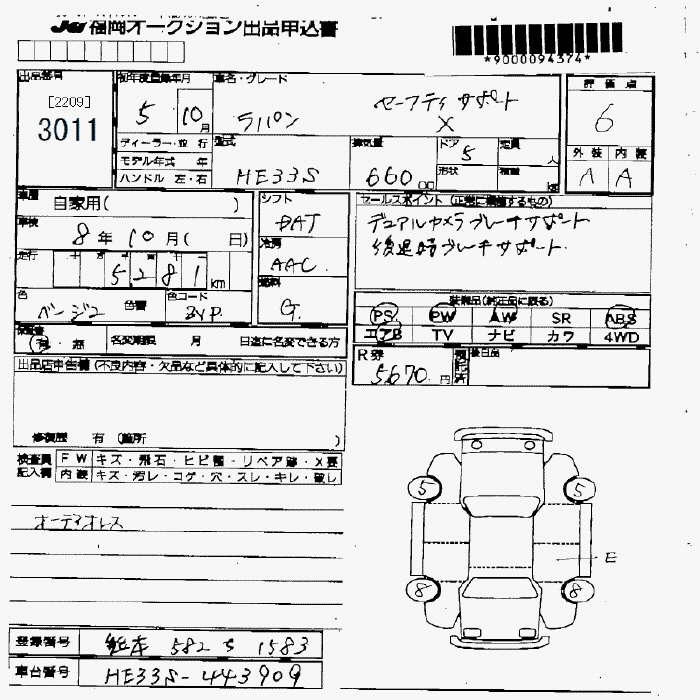 JU 福岡オークション出品申込書
*9000094374*
出品番号
[2209]
3011
初年度登録年月
5 10月
車名・グレード
ラパン
セーフティサポート
X
評価点
6
外装 内装
A A
ディーラー・並行
モデル年式 年
ハンドル 左・右
型式
HE33S
排気量
660cc
ドア
5
形状
定員
人
積載
kg
車歴
自家用( )
車検
8年10月( 日)
走行
5281km
色
ベージュ
色替
色コード
ZVP
シフト
DAT
冷房
AAC
燃料
G
セールスポイント (正常に機能するもの)
デュアルカメラブレーキサポート
後退時ブレーキサポート
装備品(純正品に限る)
PS PW AW SR ABS
エアB TV ナビ カワ 4WD
検査書
有・無
名変期限 月 日迄に名変できる方
R券
5670円
預託済
後日品
出品店申告欄 (不良内容・欠品など具体的に記入して下さい)
修復歴 有 (箇所 )
検査員
記入欄
FW キズ・飛石・ヒビ割・リペア跡・X要
内装 キズ・汚レ・コゲ・穴・スレ・キレ・破レ
オーディオレス
5 5
E
8 8
登録番号
熊本 582 さ 1583
車台番号
HE33S-443909